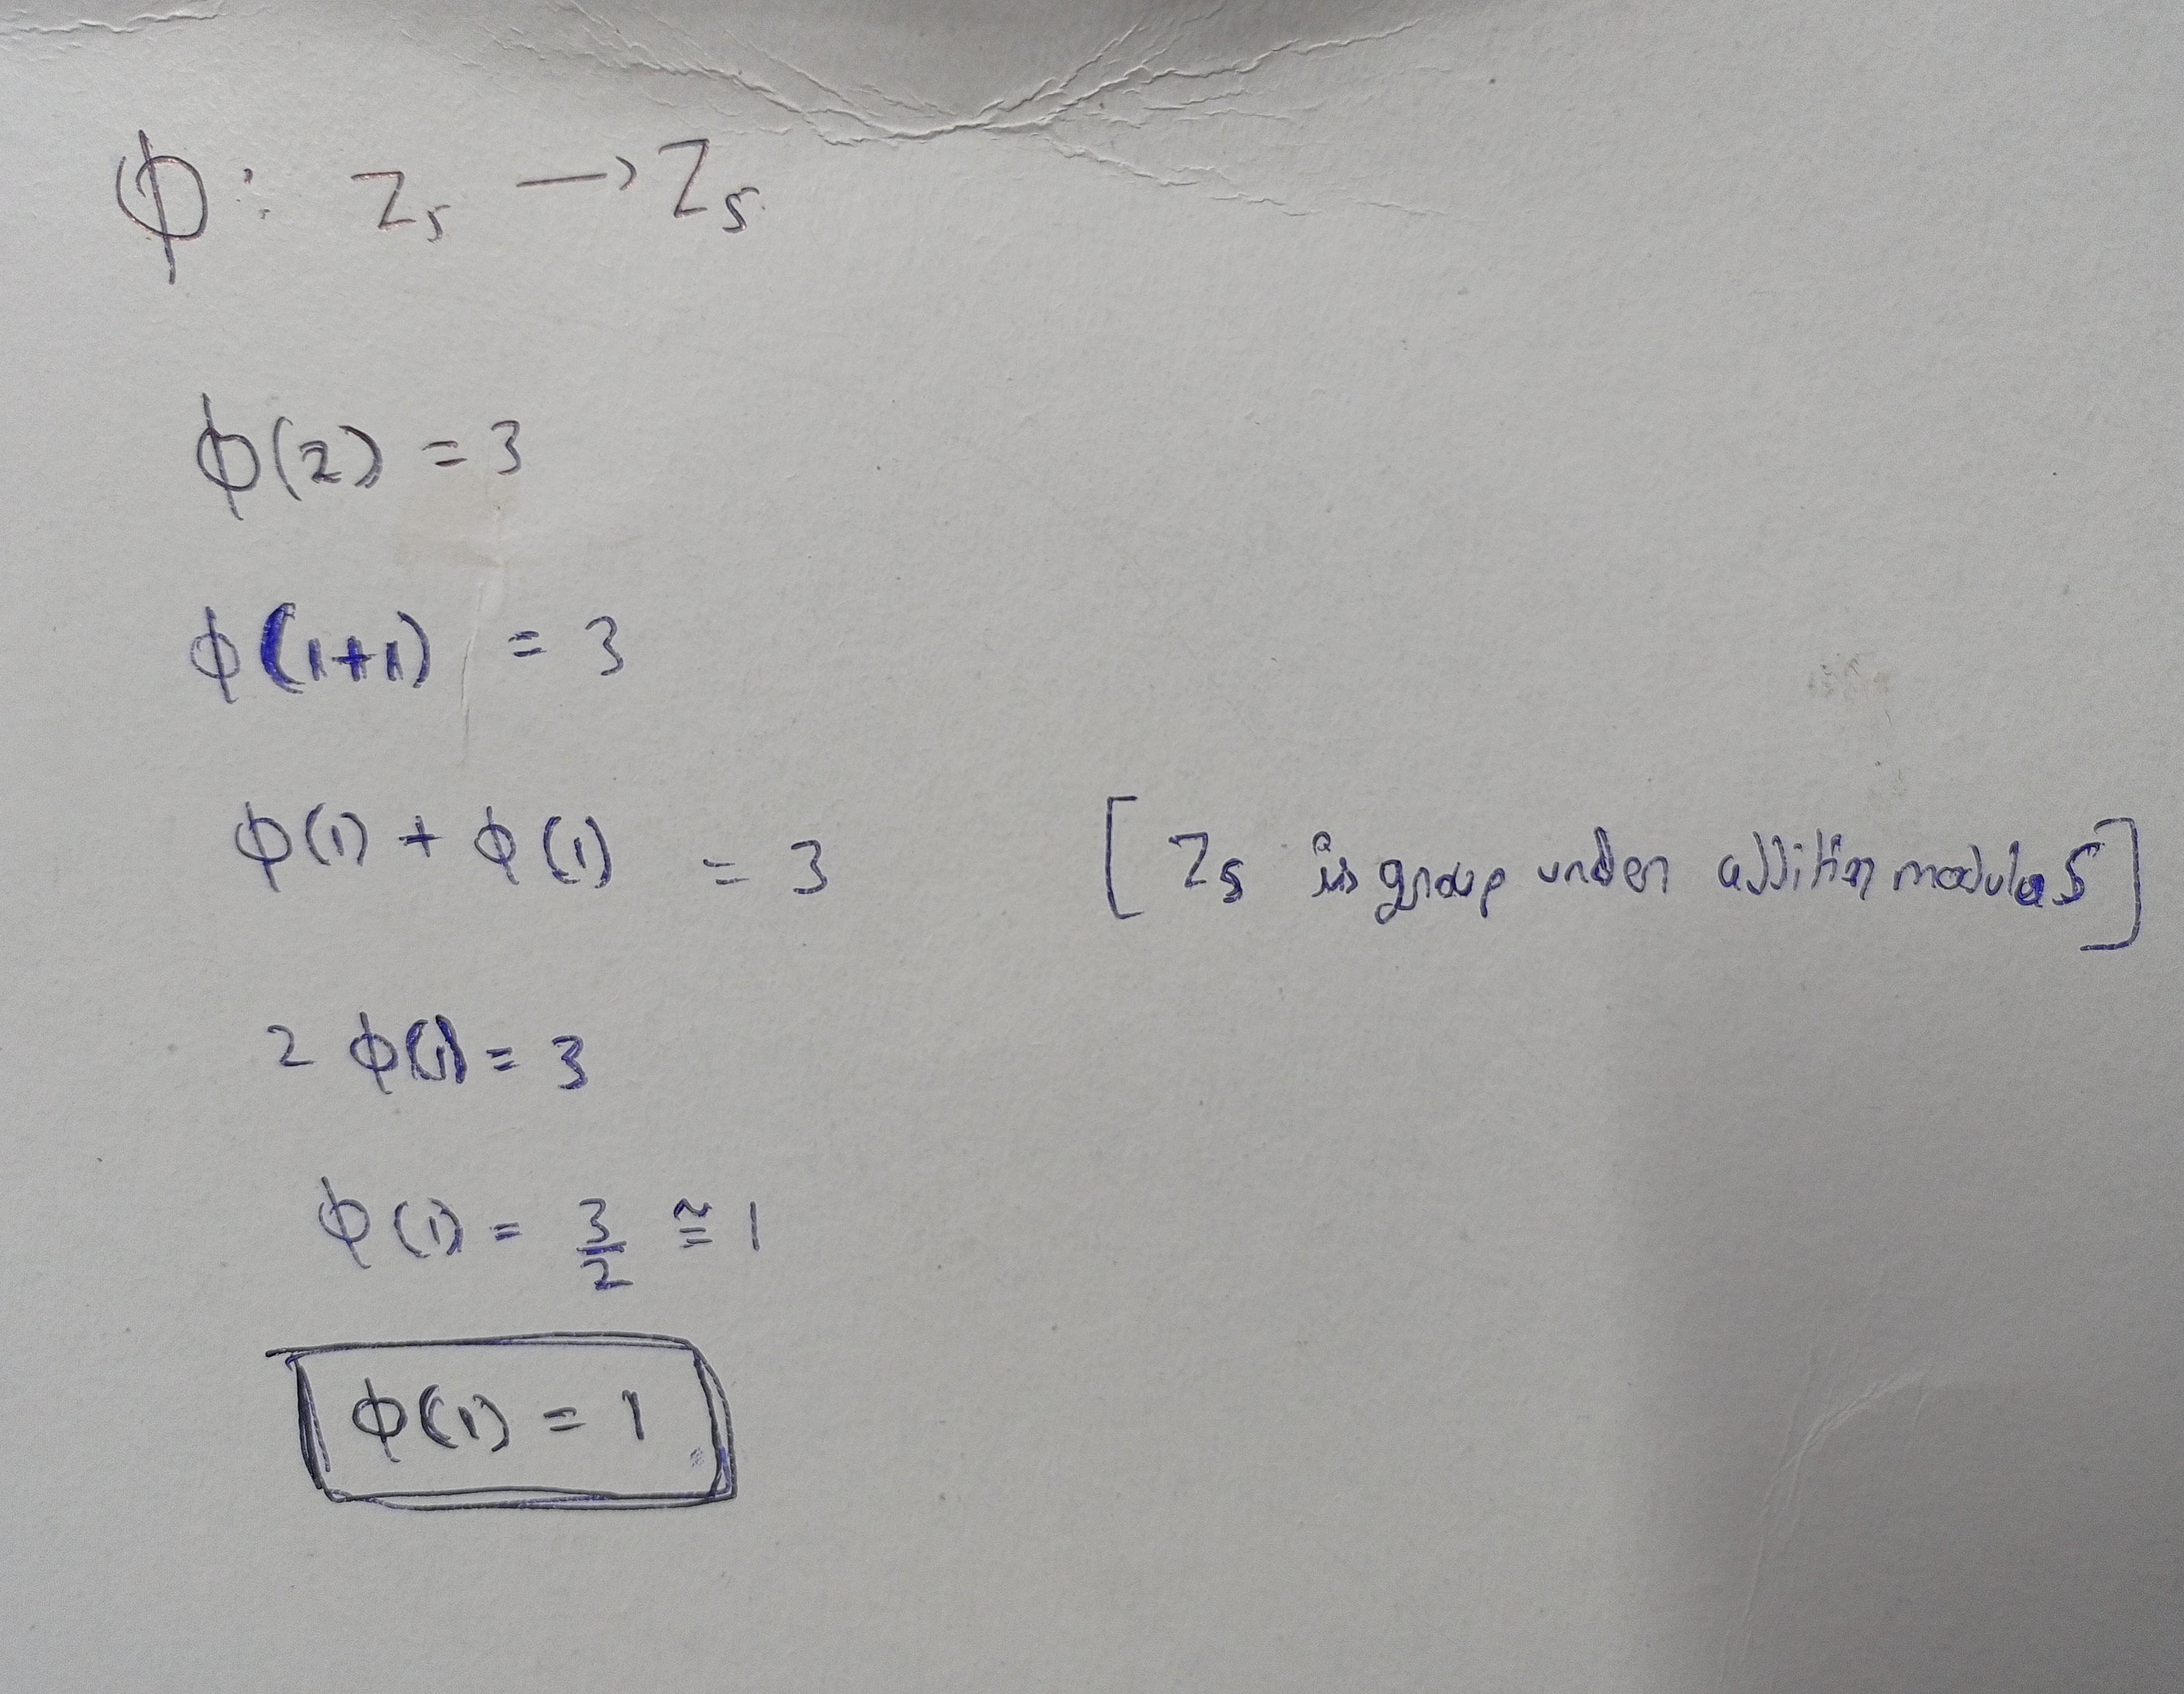 ϕ: Z₅ → Z₅
ϕ(2) = 3
ϕ(1+1) = 3
ϕ(1) + ϕ(1) = 3 [Z₅ is group under addition modulo 5]
2 ϕ(1) = 3
ϕ(1) = 3/2 ≅ 1
ϕ(1) = 1